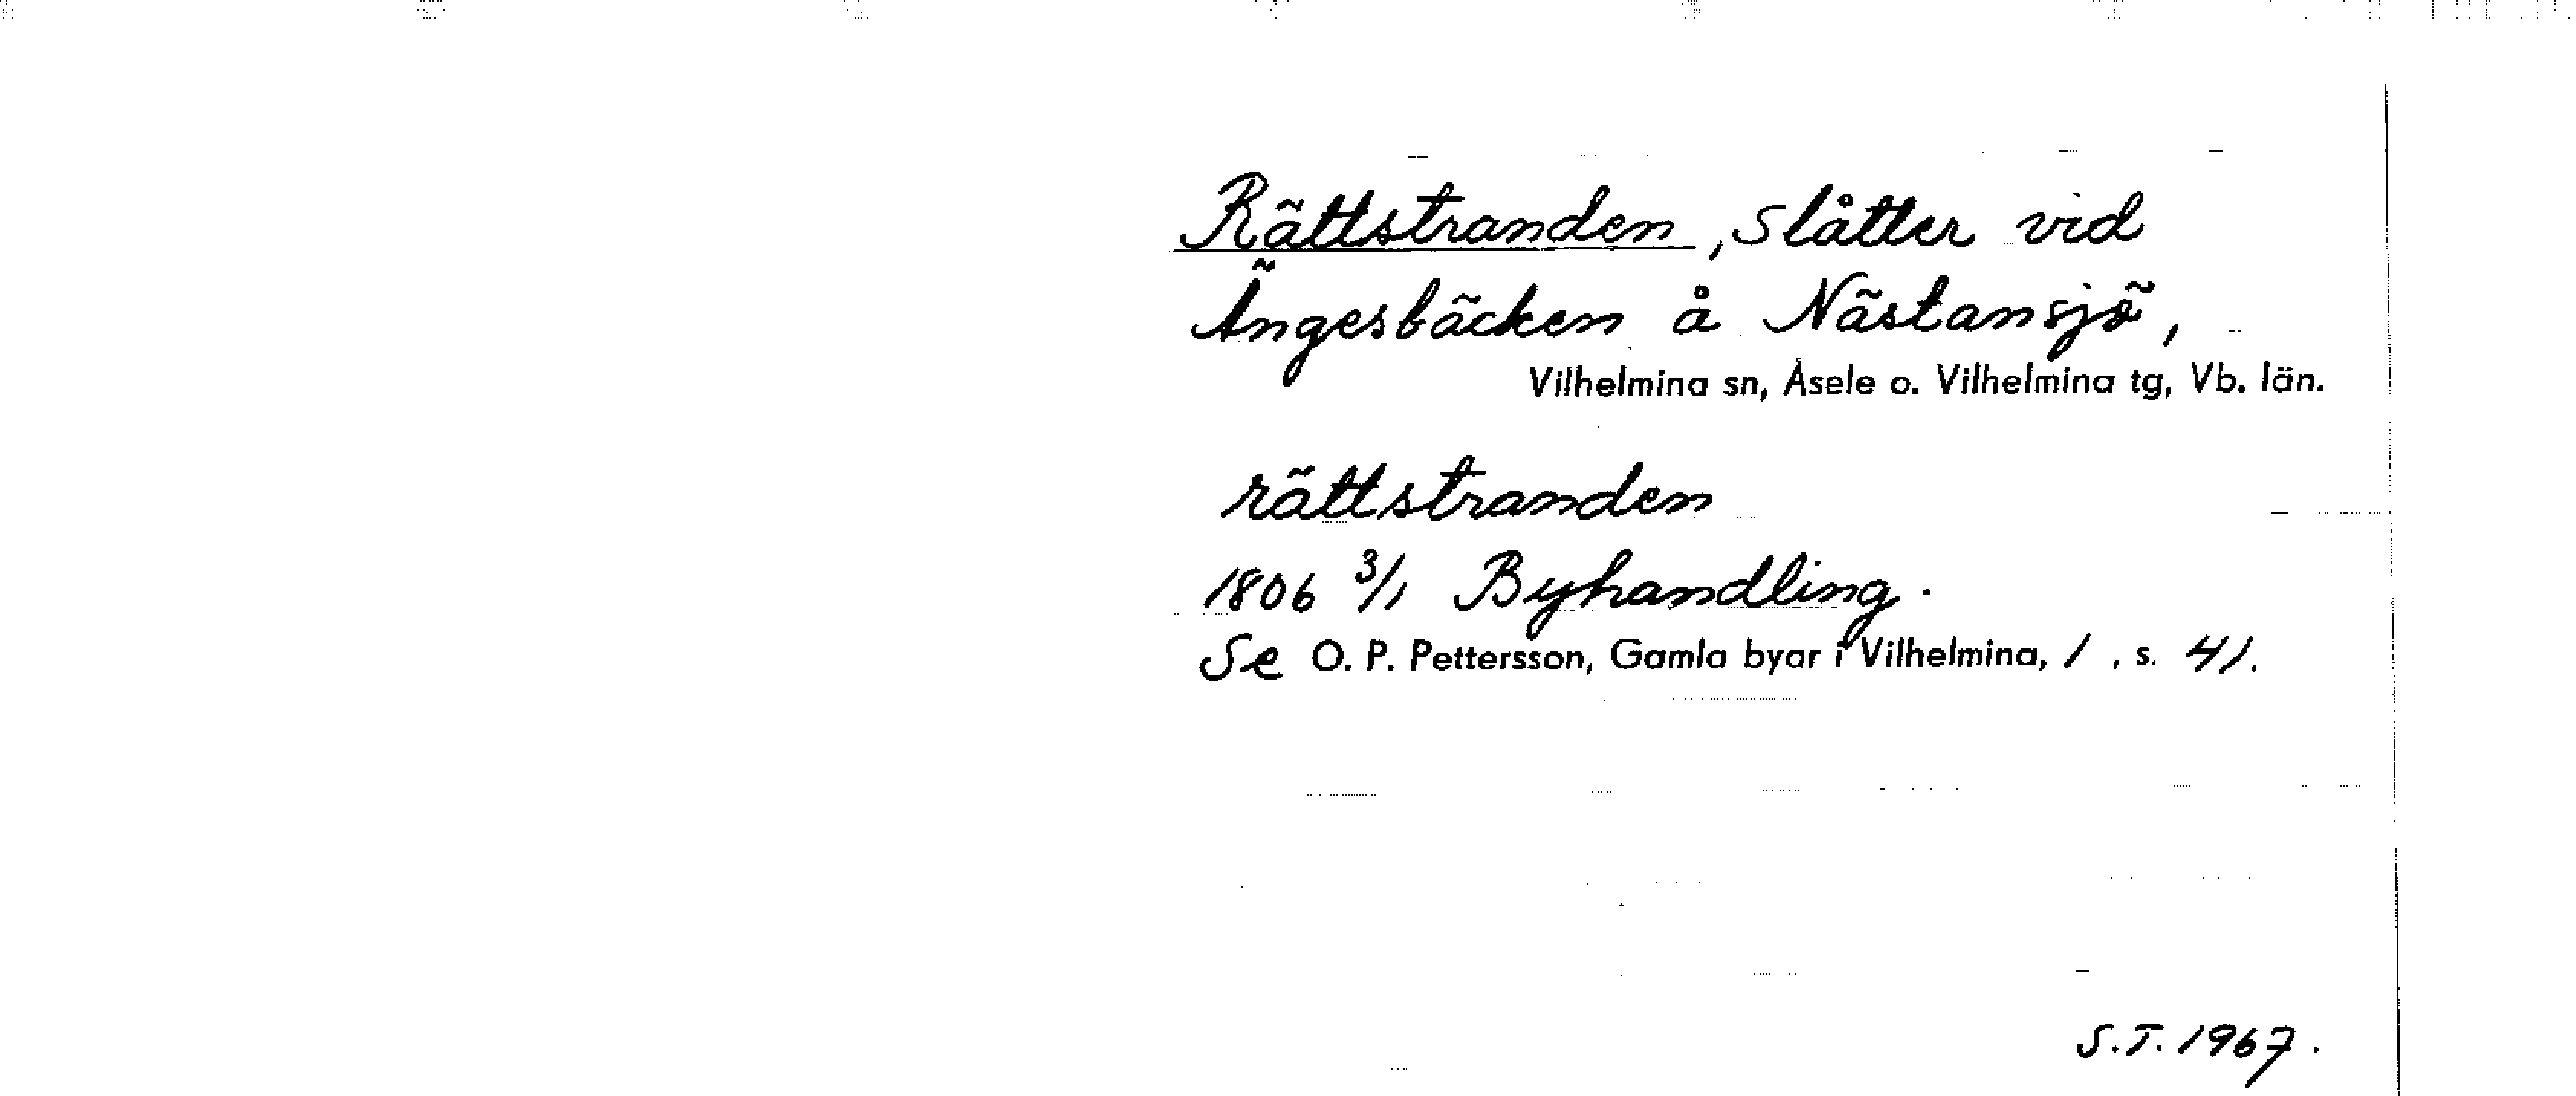 Rättstranden, slåtter vid
Ängesbäcken å Nästansjö,
Vilhelmina sn, Åsele o. Vilhelmina tg, Vb. län.
rättstranden
1806 3/1 Byhandling.
Se O. P. Pettersson, Gamla byar i Vilhelmina, 1, s. 41.
S.T. 1967.